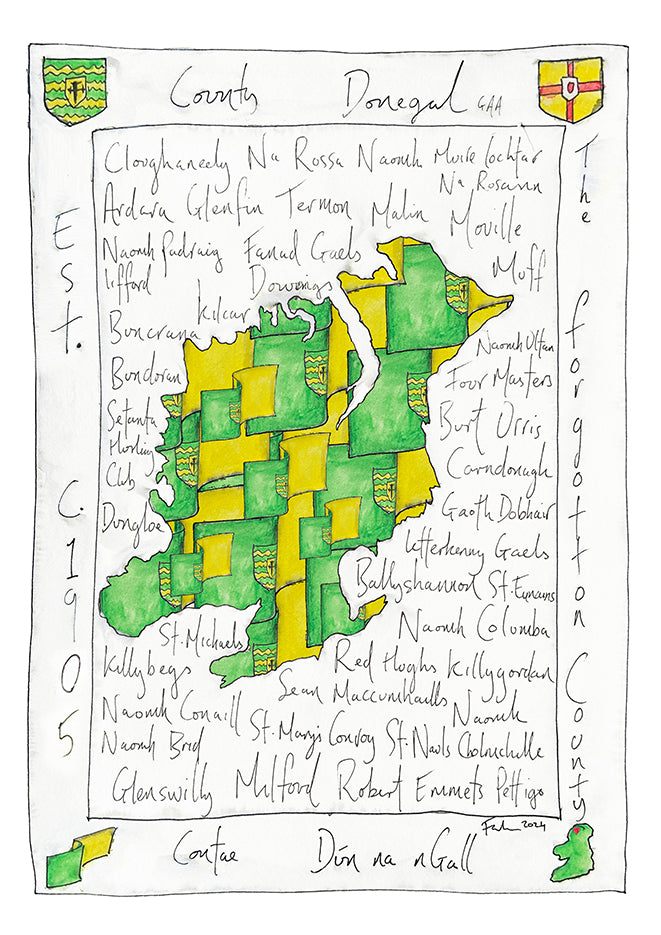 County Donegal GAA
Est. C. 1905
The forgotton County
Cloughaneely Na Rossa Naomh Muire Lochtar
Na Rosann
Ardara Glenfin Termon Malin Moville
Naomh Padraig Fanad Gaels
Muff
Lifford
Downings
Kilcar
Buncrana
Naomh Ultan
Bundoran
Four Masters
Setanta
Hurling
Club
Burt Urris
Carndonagh
Dungloe
Gaoth Dobhair
Letterkenny Gaels
Ballyshannon St. Eunans
St. Michaels
Naomh Columba
Killybegs
Red Hughs Killygordan
Sean Maccumhaills
Naomh Conaill
Naomh
Naomh Brid
St. Marys Convoy St. Nauls Cholmchille
Glenswilly Milford Robert Emmets Pettigo
2024
Contae Dún na nGall